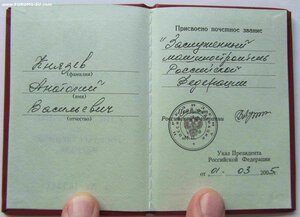 www.FORUMS-SU.com
Князев
(фамилия)
Анатолий
(имя)
Васильевич
(отчество)
Присвоено почетное звание
"Заслуженный
машиностроитель
Российской
Федерации"
Российской Федерации
Указ Президента
Российской Федерации
от „01" - 03 2005г.